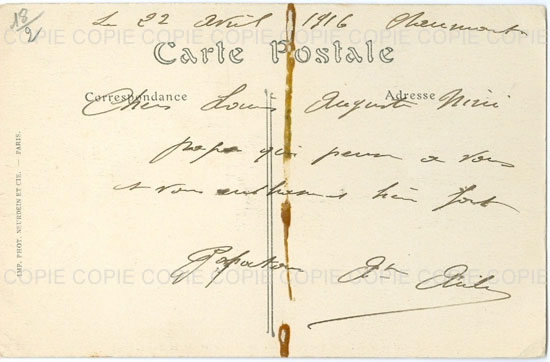 13/2
Le 22 avril 1916 Chaumont
COPIE COPIE COPIE COPIE COPIE COPIE COPIE
Carte Postale
Correspondance
Adresse
Chers Louis Auguste Mimi
COPIE COPIE COPIE COPIE COPIE COPIE COPIE
papa qui pense a vous
et vous embrasse bien fort
IMP. PHOT. NEURDEIN ET CIE. — PARIS.
COPIE COPIE COPIE COPIE COPIE COPIE COPIE